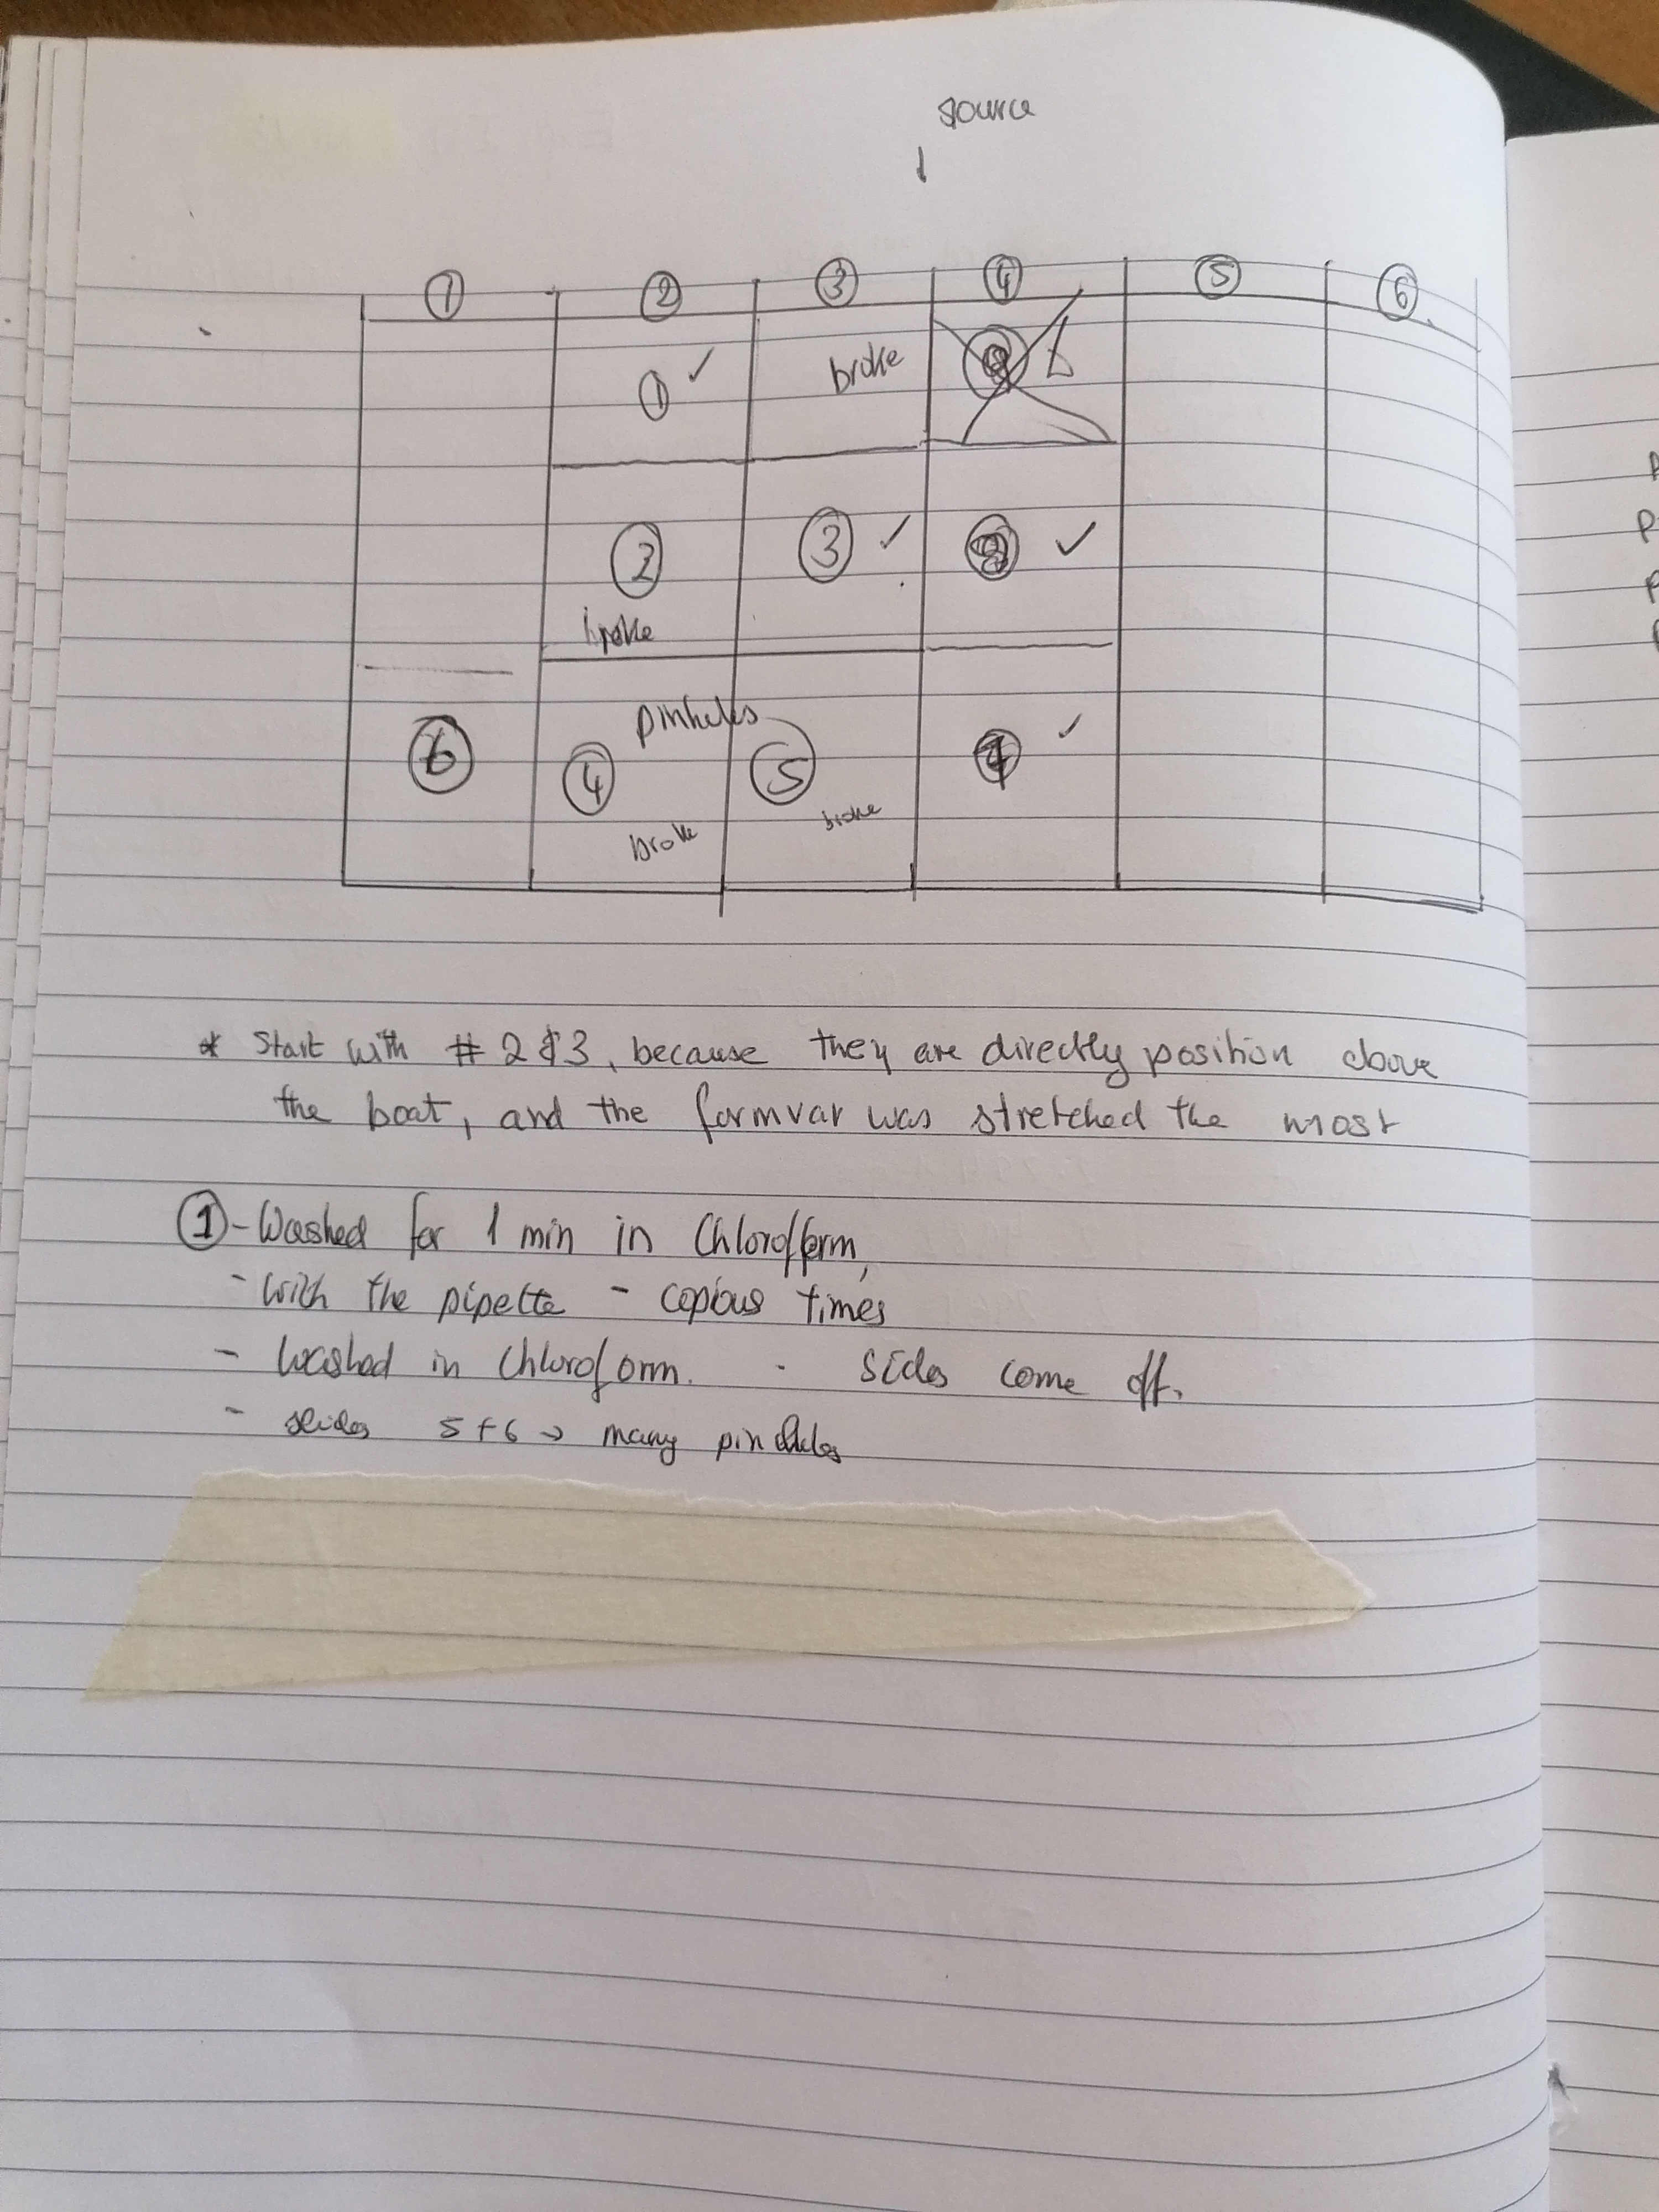 source
① ② ③ ④ ⑤ ⑥
① ✓ broke
② ③ ✓ ✓
broke
pinholes
⑥ ④ ⑤ ✓
broke broke
* Start with # 2 & 3, because they are directly position above
the boat, and the formvar was stretched the most
① - Washed for 1 min in Chloroform,
- with the pipette - copious times
- Washed in Chloroform. - sides come off.
- slides 5 + 6 → many pinholes